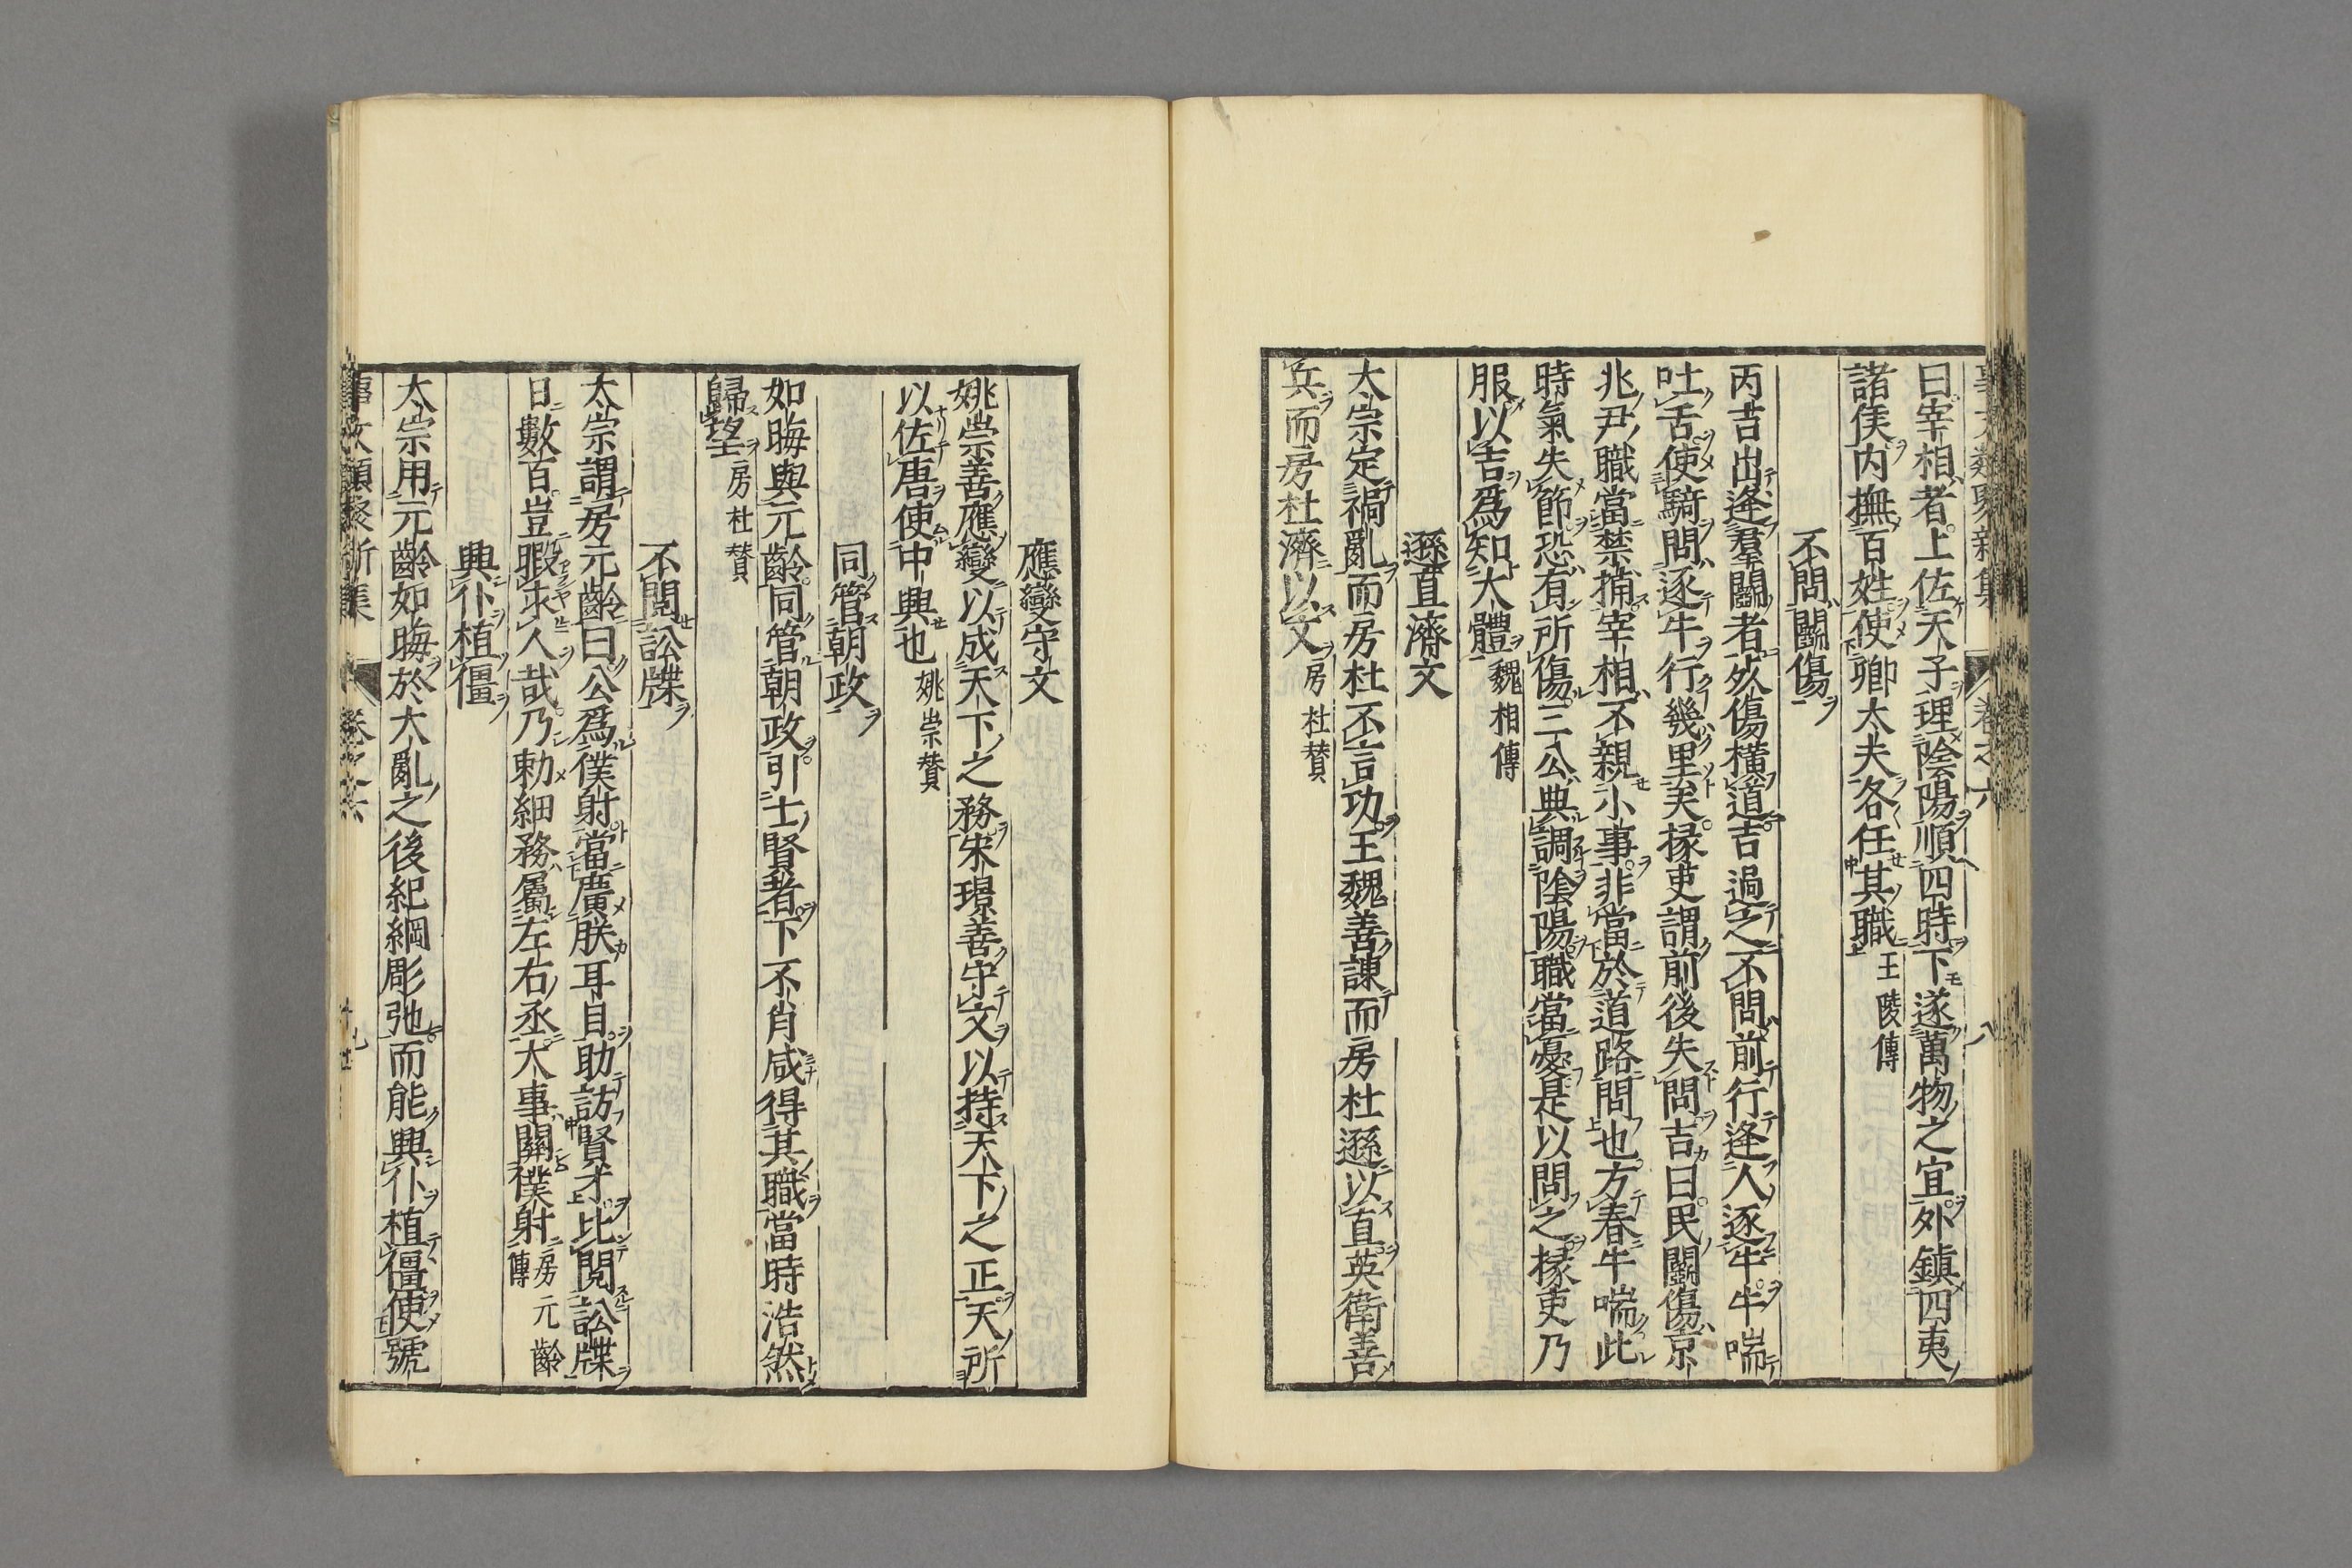 曰宰相者上佐天子理陰陽順四時下遂萬物之宜外鎮四夷
諸侯内撫百姓使卿太夫各任其職王陵傳
不問鬭傷
丙吉出逢羣鬭者死傷横道吉過之不問前行逢人逐牛牛喘
吐舌使騎問逐牛行幾里矣掾吏謂前後失問吉曰民鬭傷京
兆尹職當禁捕宰相不親小事非當於道路問也方春牛喘此
時氣失節恐有所傷三公典調陰陽職當憂是以問之掾吏乃
服以吉爲知大體魏相傳
遜直濟文
太宗定禍亂而房杜不言功王魏善諫而房杜遜以直英衛善
兵而房杜濟以文房杜賛
應變守文
姚崇善應變以成天下之務宋璟善守文以持天下之正天所
以佐唐使中興也姚崇賛
同管朝政
如晦與元齡同管朝政引士賢者下不肖咸得其職當時浩然
歸望房杜賛
不閲訟牒
太宗謂房元齡曰公爲僕射當廣朕耳目助訪賢才比閲訟牒
日數百豈暇求人哉乃勅細務屬左右丞大事關僕射房元齡傳
興仆植僵
太宗用元齡如晦於大亂之後紀綱彫弛而能興仆植僵使號